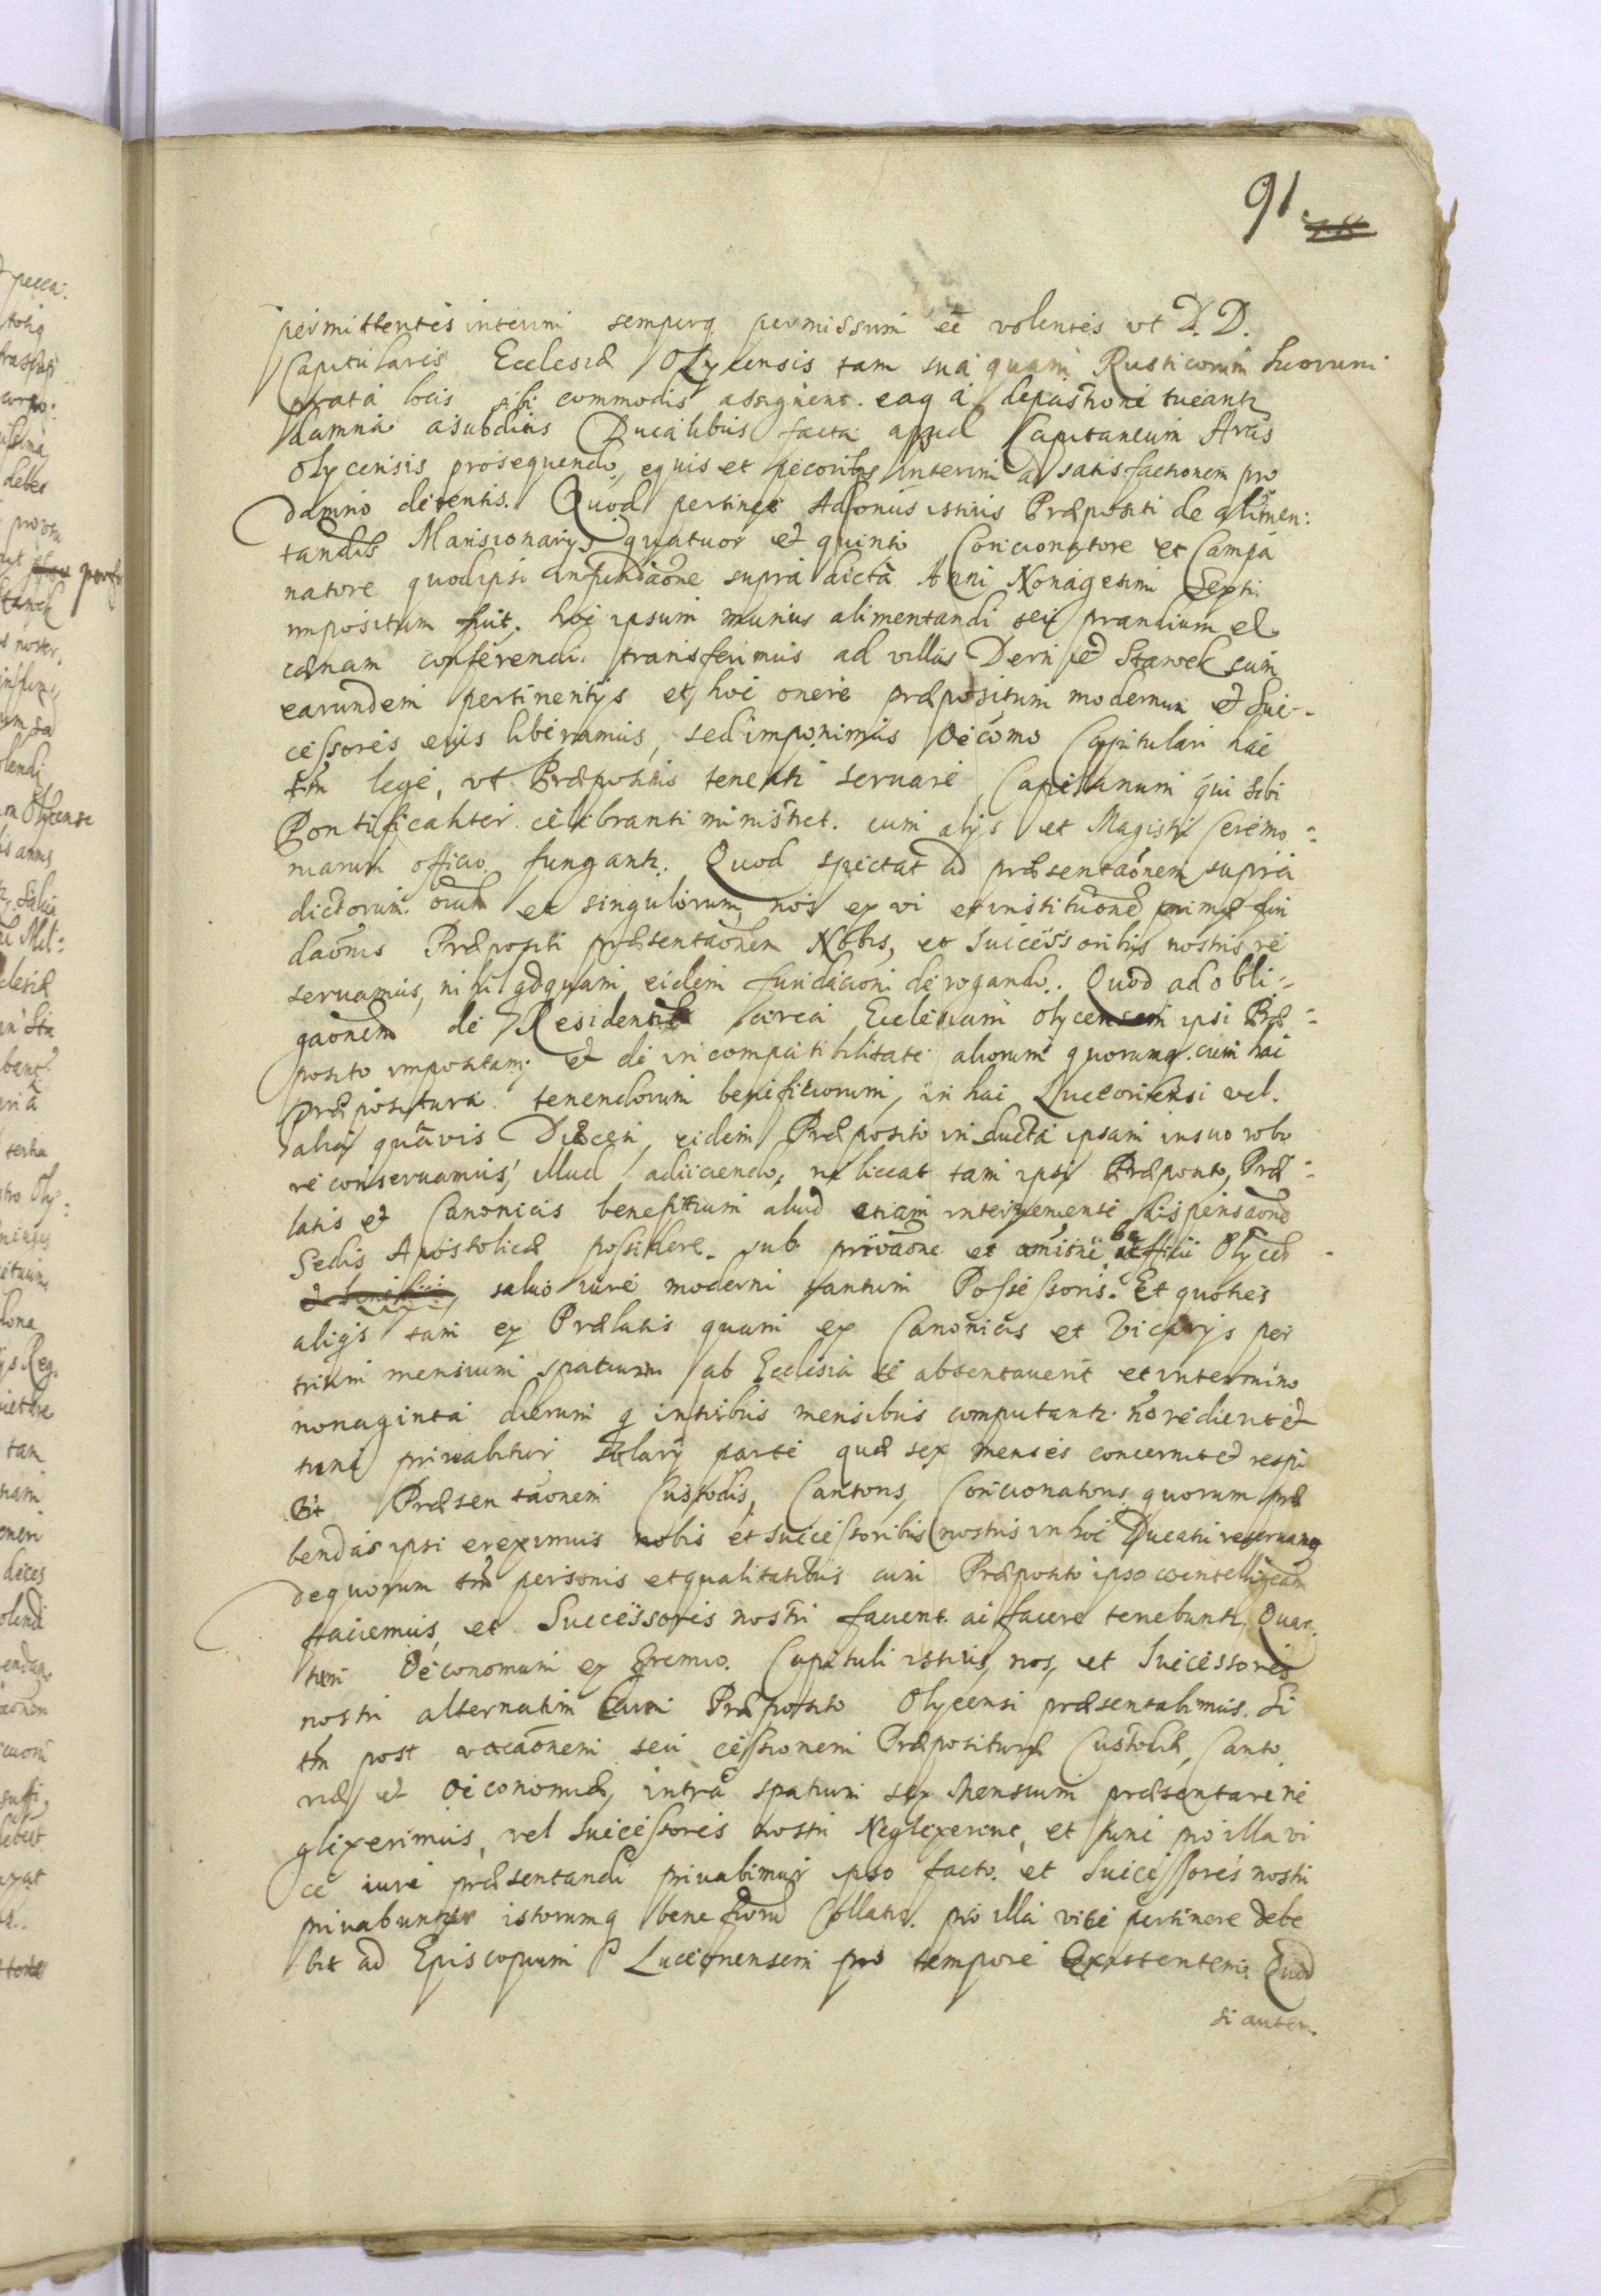 91
permittentes interim semperq permissum eē volentes vt D. D.
Capitulares Ecclesiæ Olycensis tam sua quam Rusticorum suorum
prata locis sibi commodis assignent. eaq a depastione tueantr
damna a subditis Ducalibus facta apud Capitaneum Arcis
Olycensis prosequendo, equis et pecoribus interim ad satisfactionem pro
damno detentis. Quod pertinet ad onus istius Præpositi de alimen:
tandis Mansionarys quatuor et quinto Concionatore et Campa
natore quod ipsi in fundaōne supra dicta Anni Nonagesimi Septi
impositum fuit. hoc ipsum munus alimentandi seu prandium et
cænam conferendi. transferimus ad villas Dern et Stawek cum
earundem pertinentijs et hoc onere præpositum modernum et Suc-
cessores eius liberamus, sed imponimus Oecomo Capitulari hac
tm̄ lege, vt Præpositus teneatr seruare Capellanum qui sibi
Pontificaliter celebranti ministret. cum alijs et Magistri Ceremo:
niarum officio fungantr. Quod spectat ad præsentaōnem supra
dictorum oīum et singulorum, nos ex vi et institutione primæ fun
daōnis Præpositi præsentaōnem Nobis, et Successoribus nostris re
seruamus, nihil qdquam eidem fundacioni derogando. Quod ad obli=
gaōnem de Residentia circa Ecclesiam Olycensem ipsi Præ=
posito impositam; et de incompatibilitate aliorum quorumq. cum hac
præpositura tenendorum beneficiorum, in hac Luceoriensi vel.
alia quavis Diæcesi, eidem Præposito inducta ipsam in suo robo
re conseruamus, illud adiiciendo, ne liceat tam ipsi Præposito, Præ=
latis et Canonicis beneficium aliud etiam interveniente dispensaōne
Sedis Apostolicæ possidere. sub privaōne et amissione Olycen
et beneficii, saluo iure moderni tantum Possessoris. Et quoties
aliqis tam ex Prælatis quam ex Canonicis et Vicarijs per
trium mensium spatium ab Ecclesia se absentauerit et in termino
nonaginta dierum q in tribus mensibus computantr. nō redierit et
tunc priuabitur salarij parte quæ sex menses concernit et respi
cit Præsentaōnem Custodis, Cantoris, Concionatoris quorum præ
bendas ipsi ereximus nobis et successoribus nostris in hoc Ducatu reseruamq
de quorum tm̄ personis et qualitatibus cum Præposito ipso cointelligeam
faciemus, et Successores nostri facient. ac facere tenebuntr Quar
tum Oeconomum ex Gremio. Capituli istius, nos, et Successores
nostri alternatim cum Præposito Olycensi præsentabimus. Si
tm̄ post vacaōnem seu cessionem Præpositurae Custodiæ, Canto
riæ et Oeconomiæ, intra spatium sex Mensium præsentare ne
glixerimus, vel Successores nostri Neglexerint, et tunc pro illa vi
ce iure præsentandi priuabimur ipso facto. et Successores nostri
priuabuntur istorumq beneficiorū Collatio. pro illa vice pertinere debe
bit ad Episcopum Luceoriensem pro tempore existentem. Quod
si autem.